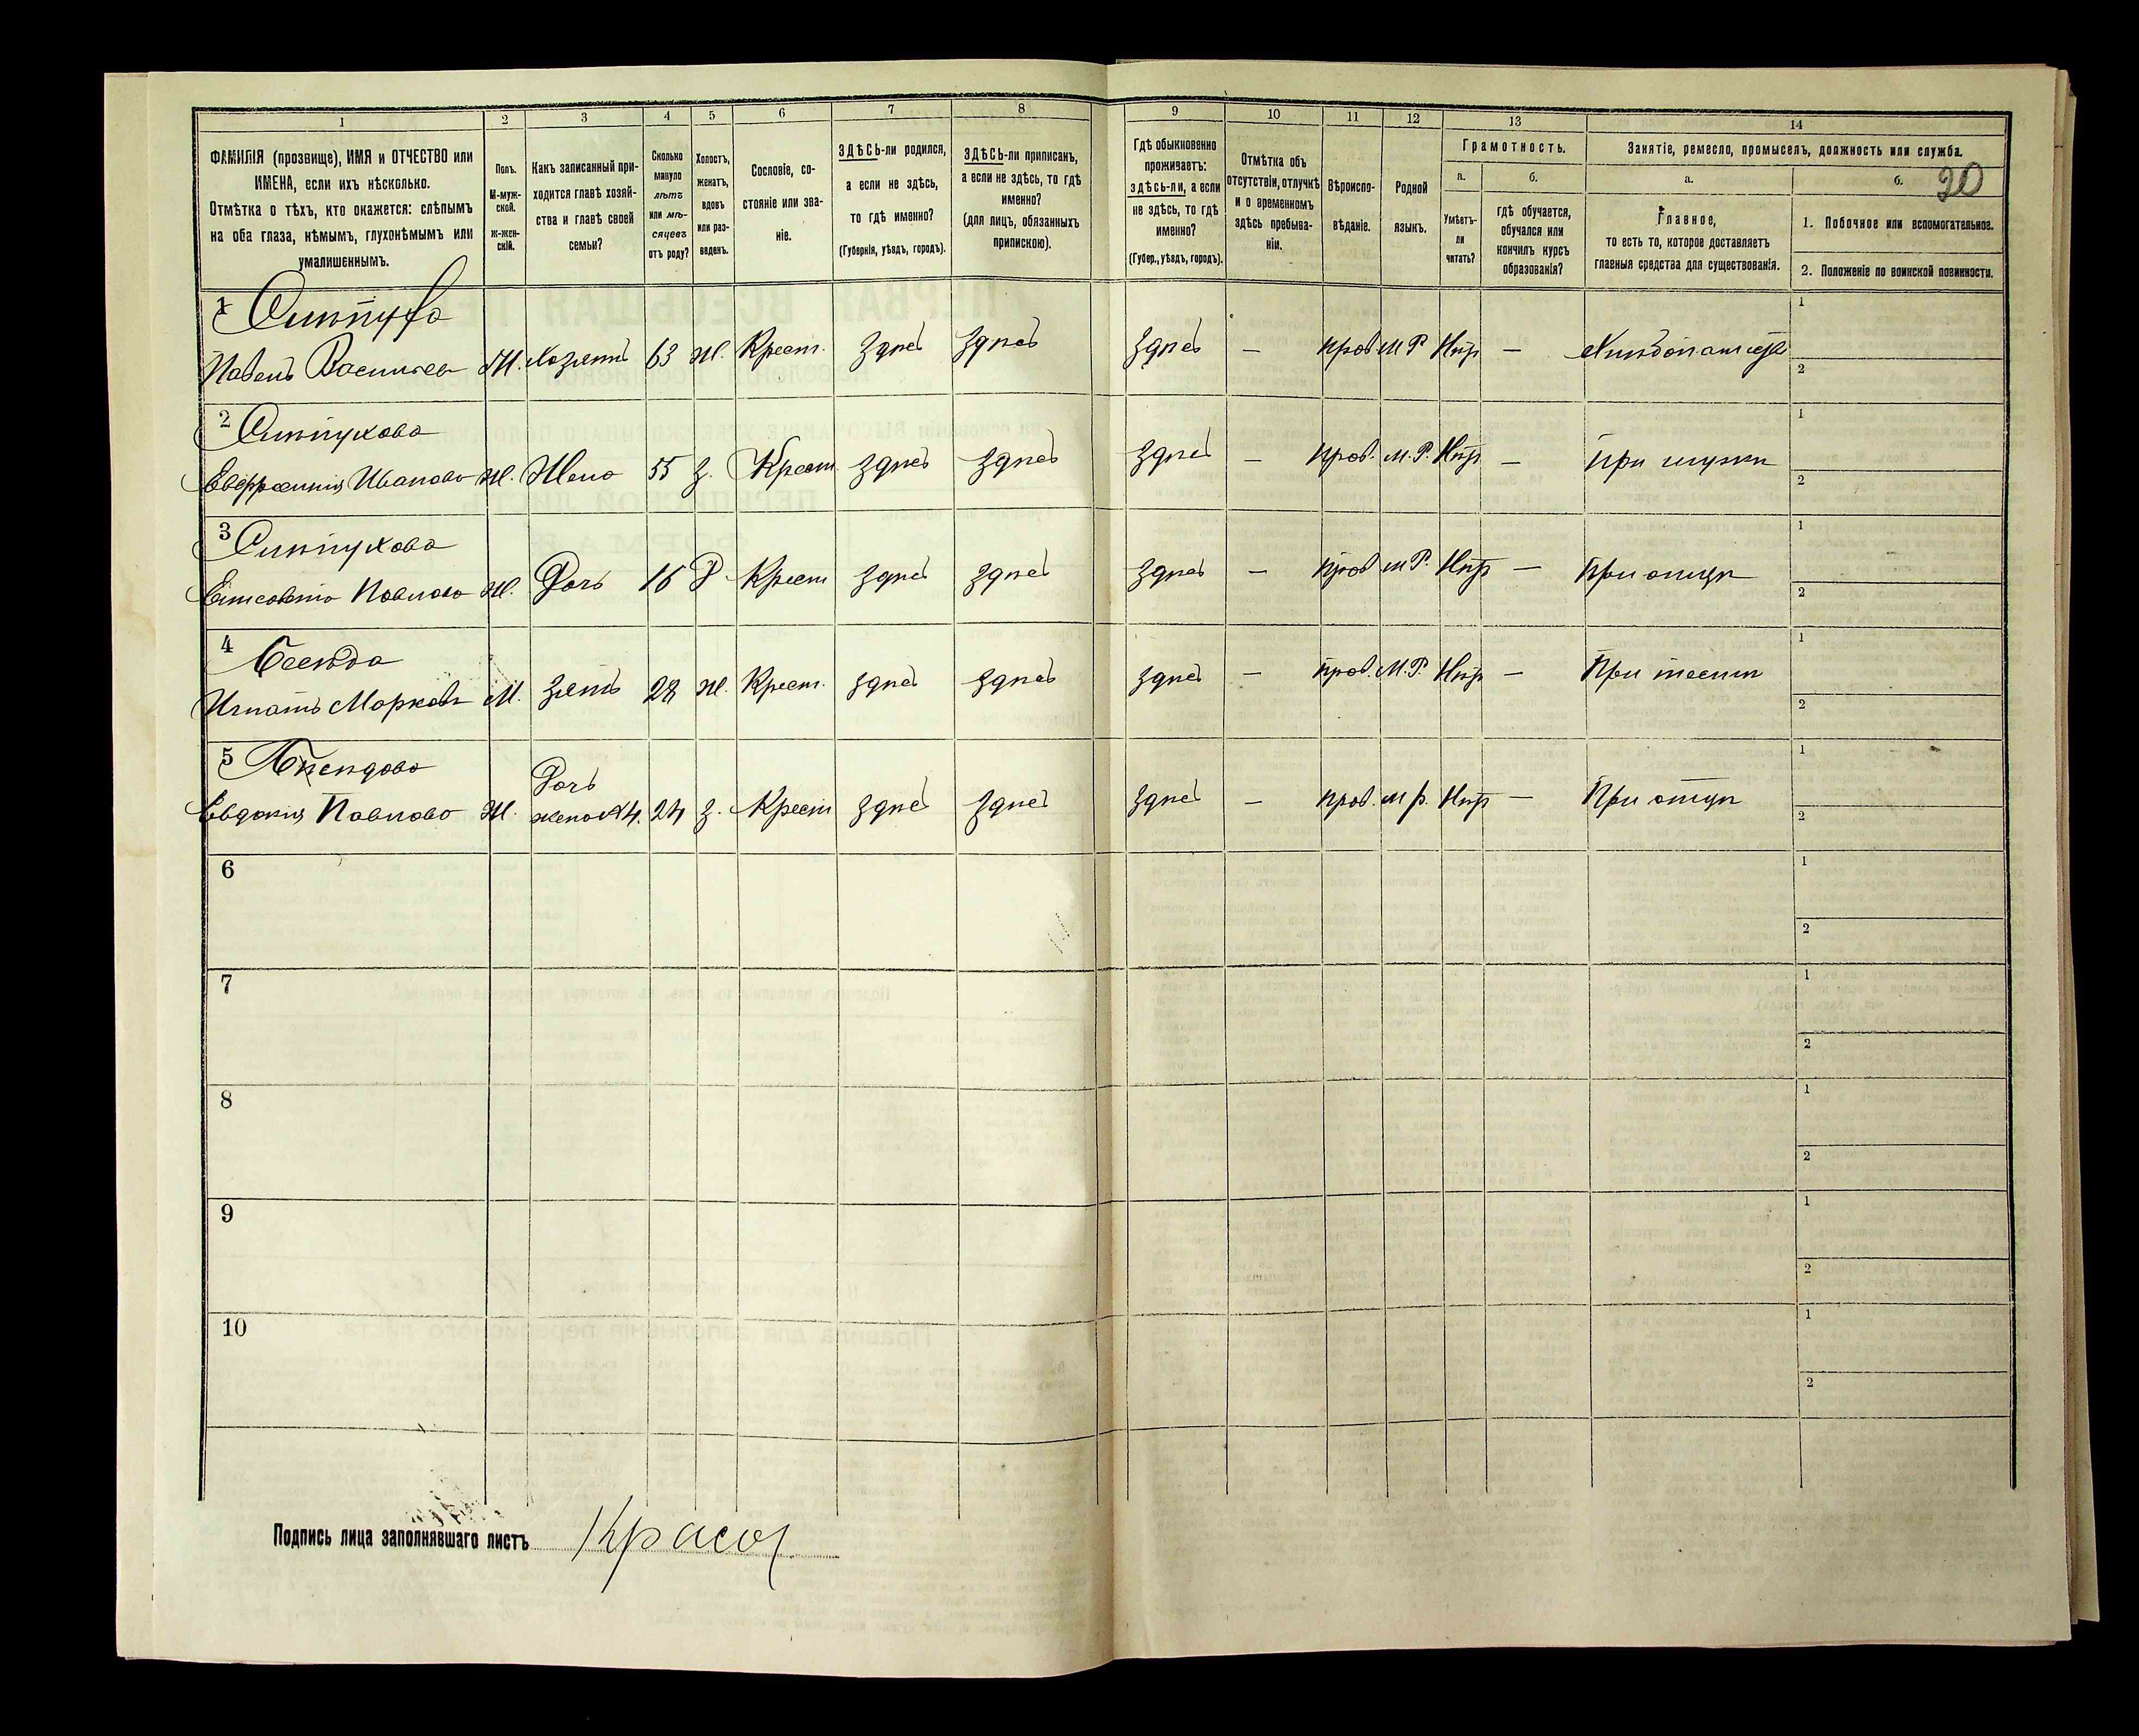 1
2
3
4
5
6
7
8
9
10
11
12
13
14
ФАМИЛІЯ (прозвище), ИМЯ и ОТЧЕСТВО или
ИМЕНА, если ихъ нѣсколько.
Отмѣтка о тѣхъ, кто окажется: слѣпымъ
на оба глаза, нѣмымъ, глухонѣмымъ или
умалишеннымъ.
Полъ.
М-муж-
ской.
ж-жен-
скій.
Какъ записанный при-
ходится главѣ хозяй-
ства и главѣ своей
семьи?
Сколько
минуло
лѣтъ
или мѣ-
сяцевъ
отъ роду?
Холостъ,
женатъ,
вдовъ
или раз-
веденъ.
Сословіе, со-
стояніе или зва-
ніе.
ЗДѢСЬ-ли родился,
а если не здѣсь,
то гдѣ именно?
(Губернія, уѣздъ, городъ).
ЗДѢСЬ-ли приписанъ,
а если не здѣсь, то гдѣ
именно?
(для лицъ, обязанныхъ
припискою).
Гдѣ обыкновенно
проживаетъ:
здѣсь-ли, а если
не здѣсь, то гдѣ
именно?
(Губер., уѣздъ, городъ).
Отмѣтка объ
отсутствіи, отлучкѣ
и о временномъ
здѣсь пребыва-
ніи.
Вѣроиспо-
вѣданіе.
Родной
языкъ.
Грамотность.
а.
б.
Умѣетъ-
ли
читать?
гдѣ обучается,
обучался или
кончилъ курсъ
образованія?
Занятіе, ремесло, промыселъ, должность или служба.
а.
б.
20
Главное,
то есть то, которое доставляетъ
главныя средства для существованія.
1. Побочное или вспомогательное.
2. Положеніе по воинской повинности.
1
Павелъ Васильев М. Хозяинъ 63 ж. Крест. Здѣсь Здѣсь Здѣсь — прав. М Р Нѣт — Хлѣбопашецъ
1
2
2 Слѣпухова
Евфросинія Иванова Ж. Жена 55 З. Крест. Здѣсь Здѣсь Здѣсь — прав. М. Р. Нѣт — При мужѣ
1
2
3 Слѣпухова
Елисавета Павлова Ж. Дочь 16 Д Крест Здѣсь Здѣсь Здѣсь — прав М Р. Нѣт — При отцѣ
1
2
4
Игнатъ Марковъ М. Зять 28 ж. Крест. Здѣсь Здѣсь Здѣсь — прав. М. Р. Нѣт — При тестѣ
1
2
5
Дочь
Евдокія Павлова Ж. жена №4. 24 З. Крест Здѣсь Здѣсь Здѣсь — прав. М Р. Нѣт — При отцѣ
1
2
6
1
2
7
1
2
8
1
2
9
1
2
10
1
2
Подпись лица заполнявшаго листъ